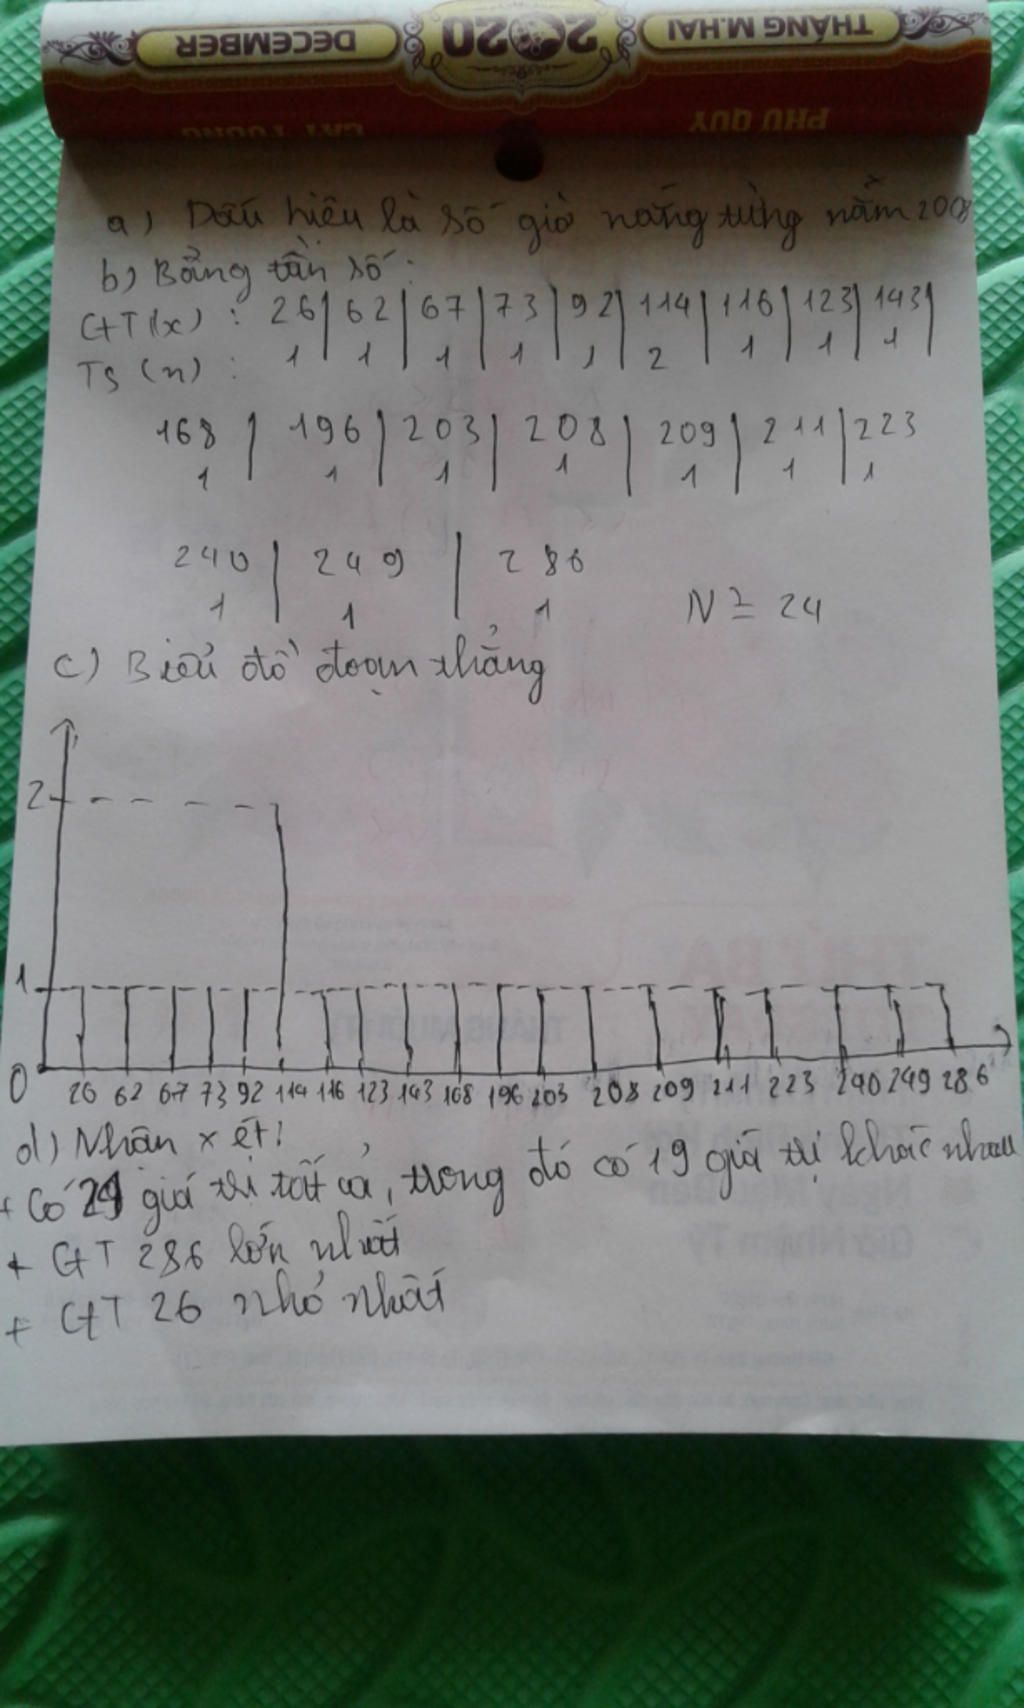 THÁNG M.HAI 2020 DECEMBER
PHÚ QUÝ CÁT TƯỜNG
a) Dấu hiệu là số giờ nắng từng năm 2008
b) Bảng tần số:
GT(x) : 26 | 62 | 67 | 73 | 92 | 114 | 116 | 123 | 143 |
TS (n) : 1 | 1 | 1 | 1 | 1 | 2 | 1 | 1 | 1 |
168 | 196 | 203 | 208 | 209 | 211 | 223
1 | 1 | 1 | 1 | 1 | 1 | 1
240 | 249 | 286
1 | 1 | 1
N = 24
c) Biểu đồ đoạn thẳng
2
1
0 26 62 67 73 92 114 116 123 143 168 196 203 208 209 211 223 240 249 286
d) Nhận xét:
+ Có 24 giá trị tất cả, trong đó có 19 giá trị khác nhau
+ GT 286 lớn nhất
+ GT 26 nhỏ nhất